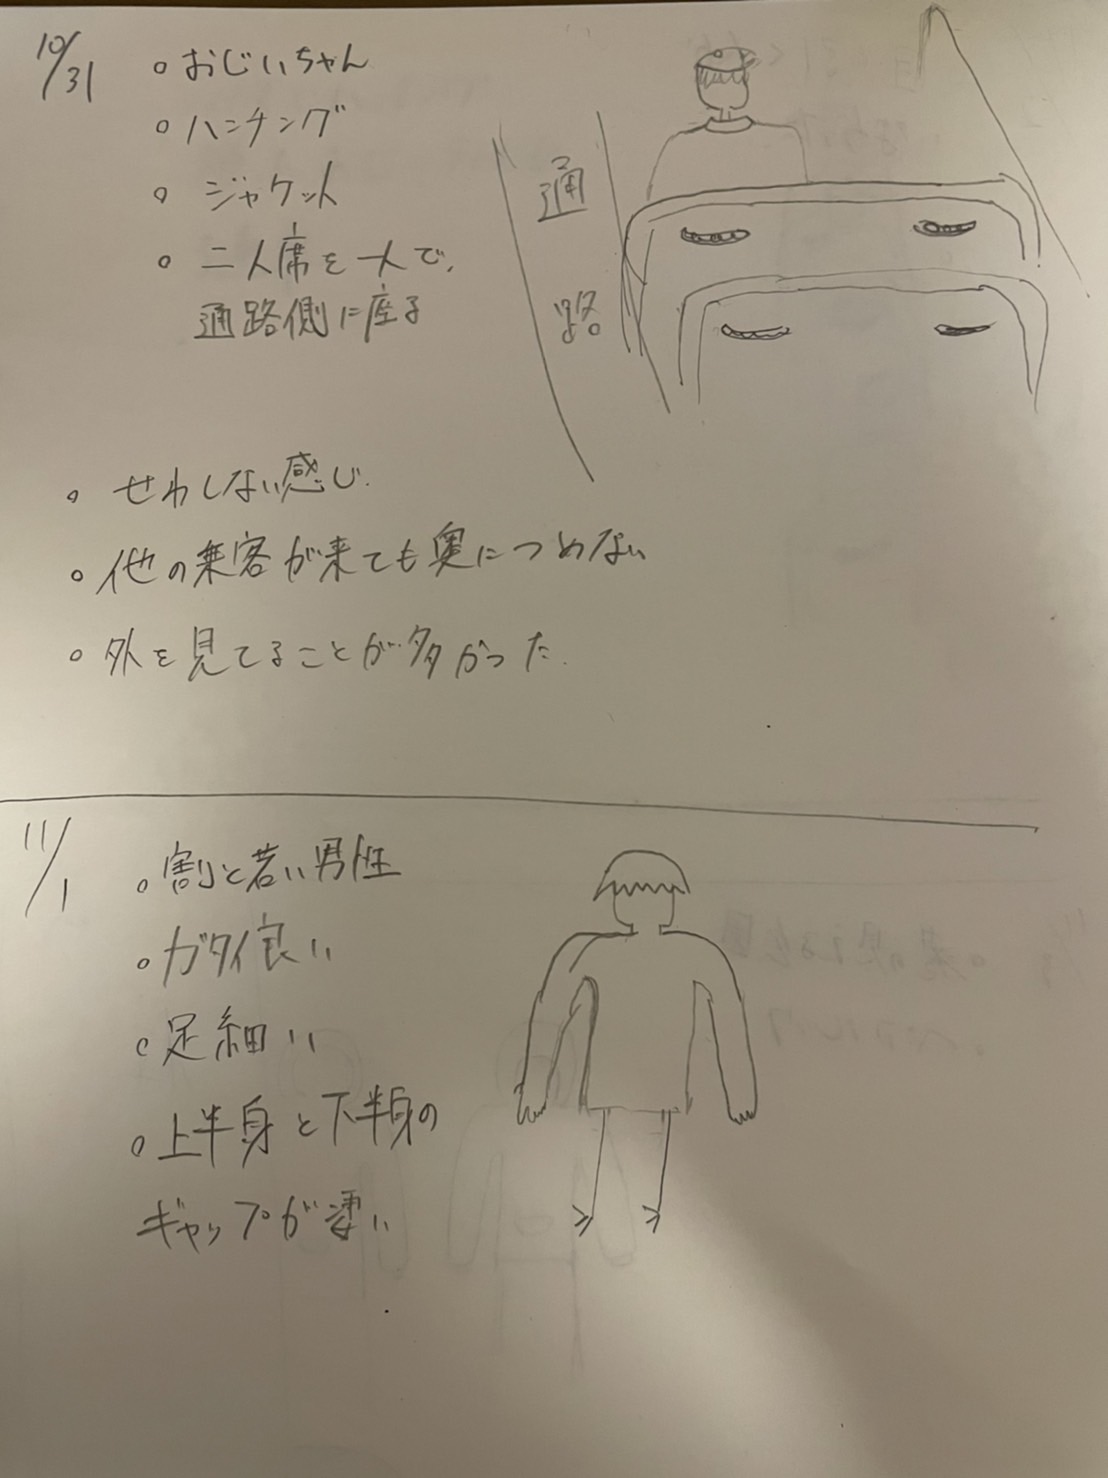 10/31
。おじいちゃん
。ハンチング
。ジャケット
。二人席を一人で、
通路側に座る
通
路
。せわしない感じ.
。他の乗客が来ても奥につめない
。外を見てることが多かった.
11/1
。割と若い男性
。ガタイ良い
。足細い
。上半身と下半身の
ギャップが凄い